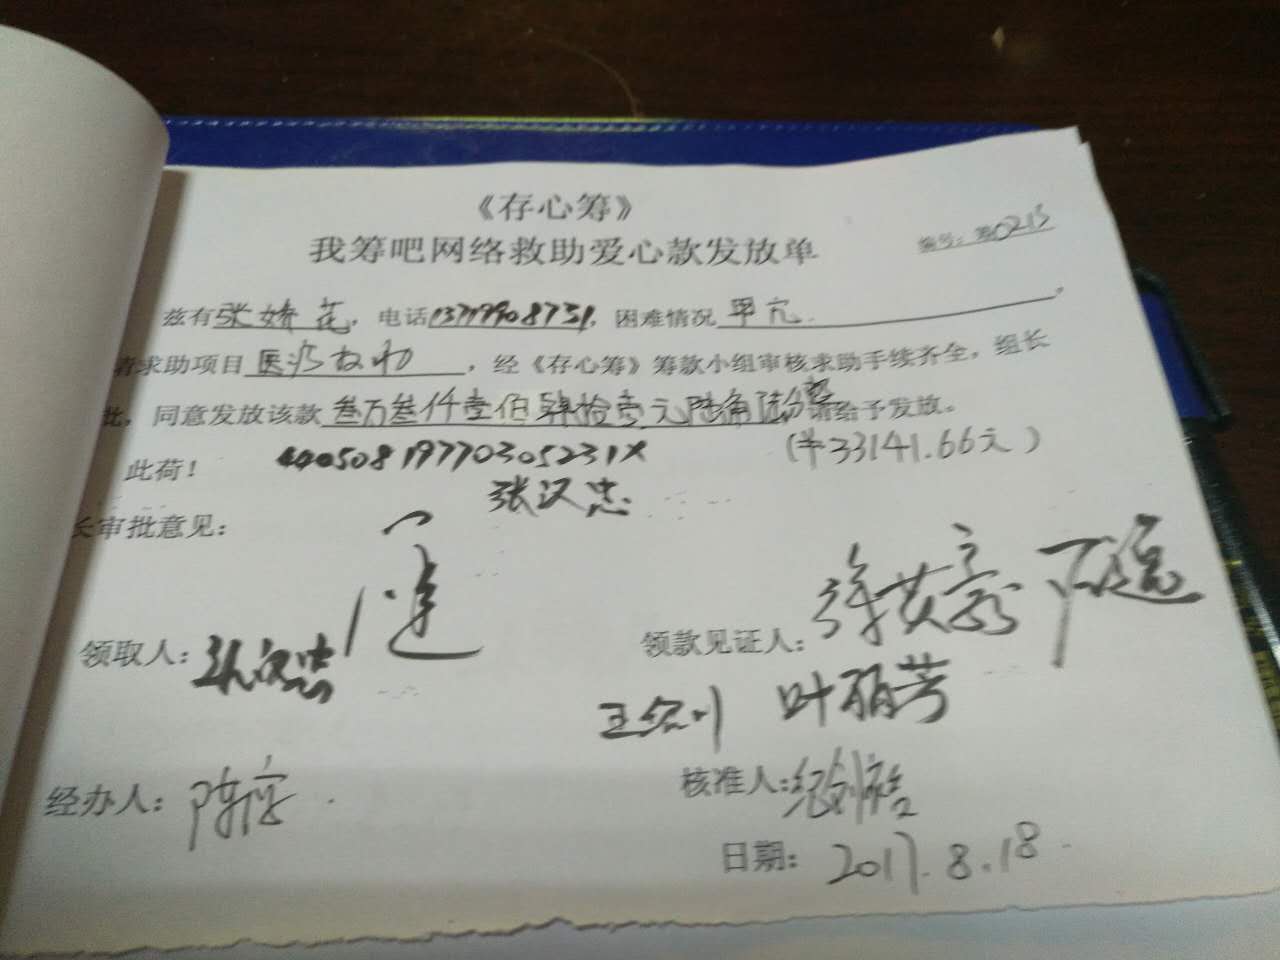 《存心筹》
我筹吧网络救助爱心款发放单
编号：第0213
兹有张娇花，电话13717908751，困难情况甲亢.
请求助项目医疗救助，经《存心筹》筹款小组审核求助手续齐全，组长
批，同意发放该款叁万叁仟壹佰肆拾壹元陆角陆分整请给予发放。
此荷！
(¥33141.66元)
44050819770305231X
张汉忠
长审批意见：
领取人：张汉忠
领款见证人：
叶丽芳
经办人：
核准人：
日期：2017.8.18